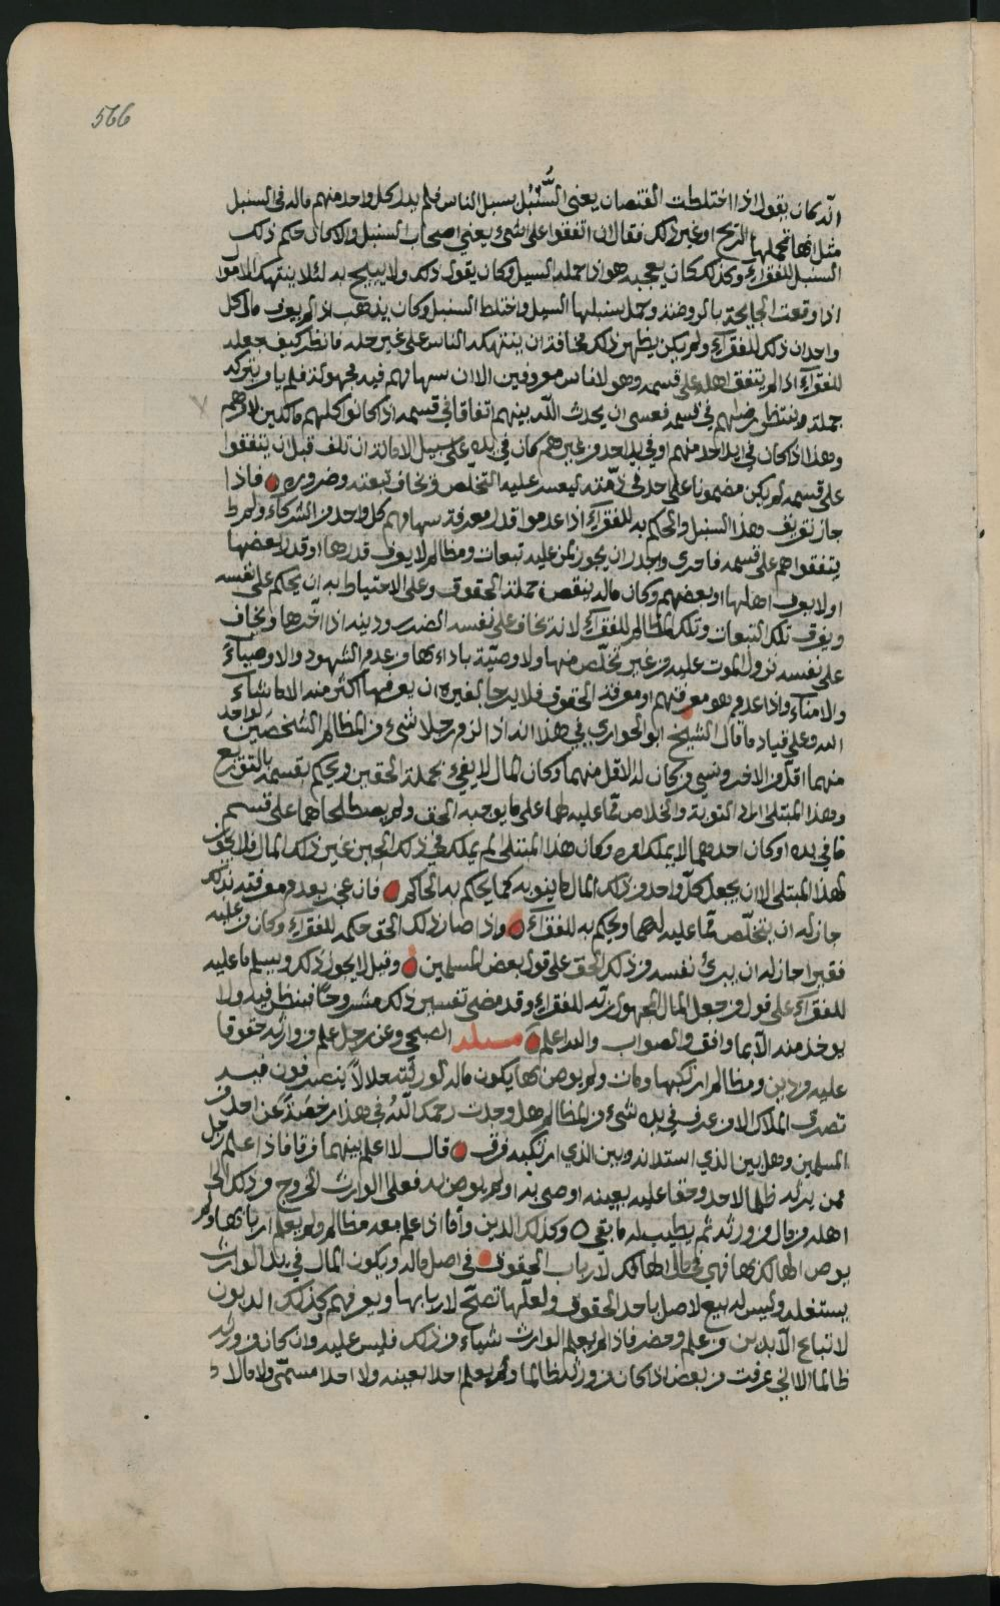 566
انه كان يقول اذا اختلطت القتصان يعني السُّنْبُل سبل الناس فلم يدر كل واحد منهم ماله في السنبل
مثل انها تحملها الريح او غير ذلك فقال ان اتفقوا على شيء يعني اصحاب السنبل والا كان حكم ذلك
السنبل للفقراء وكذلك كان يعجبه هو اذا حمله السيل وكان يقول ذلك ولا يبيح به لئلا ينتهك الاموا
اذا وقعت الجايحة بالروضة وحمل سنبلها السيل واختلط السنبل وكان يذهب اذا لم يعرف مال كل
واحد ان ذلك للفقراء ولم يكن يظهر ذلك مخافة ان ينتهكه الناس على غير حله فانظر كيف جعله
للفقراء اذا لم يتفق اهله على قسمه وهو لاناس معروفين الا ان سهامهم فيه مجهولة فلم ياو يتركه
جملة وينتظر رضاهم في قسمه فعسى ان يحدث الله بينهم اتفاقا في قسمه اذ كانوا كلهم مالكين لامرهم
وهذا اذا كان في يد احد منهم او في يد احد من غيرهم كان في يده على سبيل الامانة ان تلف قبل ان يتفقوا
على قسمه لم يكن مضمونا على احد في ذمته ليعسر عليه التخلص ويخاف تبعته وضروره فاذا
جاز تفريق هذا السنبل والحكم به للفقراء اذا عدموا قدر معرفة سهامهم كل واحد من الشركاء ولم
يتفقوا هم على قسمه فاحرى واجدر ان يجوز لمن عليه تبعات ومظالم لا يعرف قدرها او قدر بعضها
او لا يعرف اهلها او بعضهم وكان ماله ينقص جملة الحقوق وعلى الاحتياط به ان يحكم على نفسه
ويفرق تلك التبعات وتلك المظالم للفقراء لانه يخاف على نفسه الضرر ودينه اذا اخرها ويخاف
على نفسه نزول الموت عليه من غير تخلص منها ولا وصية باداءها من عدم الشهود والاوصياء
والامناء واذا عدم هو معرفتهم او معرفة الحقوق فلا يرجا لغيره ان يعرفها اكثر منه الا ما شاء
الله وعلى قياد ما قال الشيخ ابو الحواري في هذا انه اذا لزم رجلا شيء من المظالم لشخصين لواحد
منهما اقل من الاخر ونسي من كان له الاقل منهما وكان المال لا يفيء بجملة الحقين ويحكم بقسمه بالتوزيع
وهذا المبتلى اراد التوبة والخلاص مما عليه لهما على ما يوجبه الحق ولم يصطلحا هما على قسم
ما في يده او كان احدهما لا يملك امره وكان هذا المبتلى لم يملك في ذلك الحين غير ذلك المال فلا يجوز
لهذا المبتلى الا ان يجعل كلا واحد من ذلك المال ما ينوبه كما يحكم به الحاكم فان عجز بعدم معرفته لذلك
جاز له ان يتخلص مما عليه لهما ويحكم به للفقراء واذا صار ذلك الحق حكمه للفقراء وكان من عليه
فقيرا جاز له ان يبرئ نفسه من ذلك الحق على قول بعض المسلمين وقيل لا يجوز ذلك ويسلم ما عليه
للفقراء على قول من جعل المال المجهول ربه للفقراء وقد مضى تفسير ذلك مشروحا فينظر فيه ولا
يوخذ منه الا بما وافق الصواب والله اعلم مسئلة الصبحي وعن رجل علم من وارثه حقوقا
عليه من دين ومظالم ارتكبها ومات ولم يوص بها يكون ماله لورثته حلالاً يتصرفون فيه
تصرف الملاك الا من عرف في يده شيء من المظالم هل وجدت رحمك اللهُ في هذا رخصة عن احد من
المسلمين وهل بين الذي استدانه وبين الذي ارتكبه فرق قال لا اعلم بينهما فرقا فاذا علم رجل
ممن يرثه ظلما لاحد وحقا عليه بعينه اوصى به او لم يوص به فعلى الوارث الخروج من ذلك الى
اهله من مال موروثه ثم يطيب له ما بقي وكذلك الدين واما اذا علم معه مظالم ولم يعلم اربابها ولم
يوص الهالك بها فهي في مال الهالك لارباب الحقوق في اصل ماله ويكون المال في يد الوارث
يستغله وليس له بيع الاصل باحد الحقوق ولعلها تصح لاربابها ويعرفهم وكذلك الديون
لا تباع الا بدين من علم وحضر فاذا لم يعلم الوارث شياء من ذلك فليس عليه وان كان موروثه
ظالما الا اني عرفت من بعض اذا كان موروثه ظالما ولم يعلم احدا بعينه ولا احدا مسمّى ولا مالا